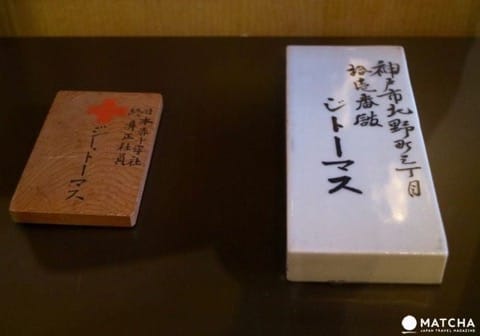 日本赤十字社
終身正社員
ジ・トーマス
神戸市北野町三丁目
拾壱番邸
ジトーマス
MATCHA
JAPAN TRAVEL MAGAZINE